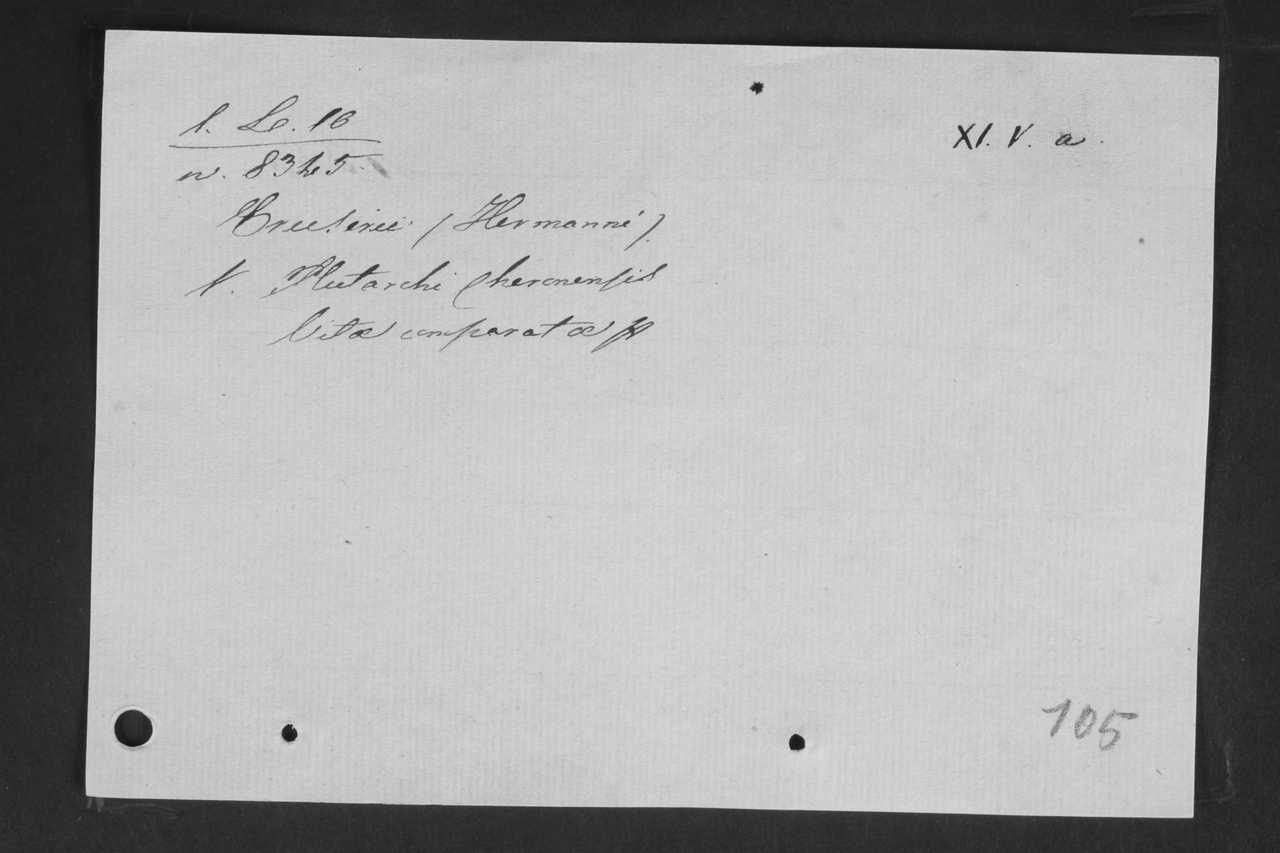 l. Le. 16
XI. V. a.
n. 8345.
Cruserii (Hermanni).
V. Plutarchi Cheronensis
Vitæ comparatæ
105